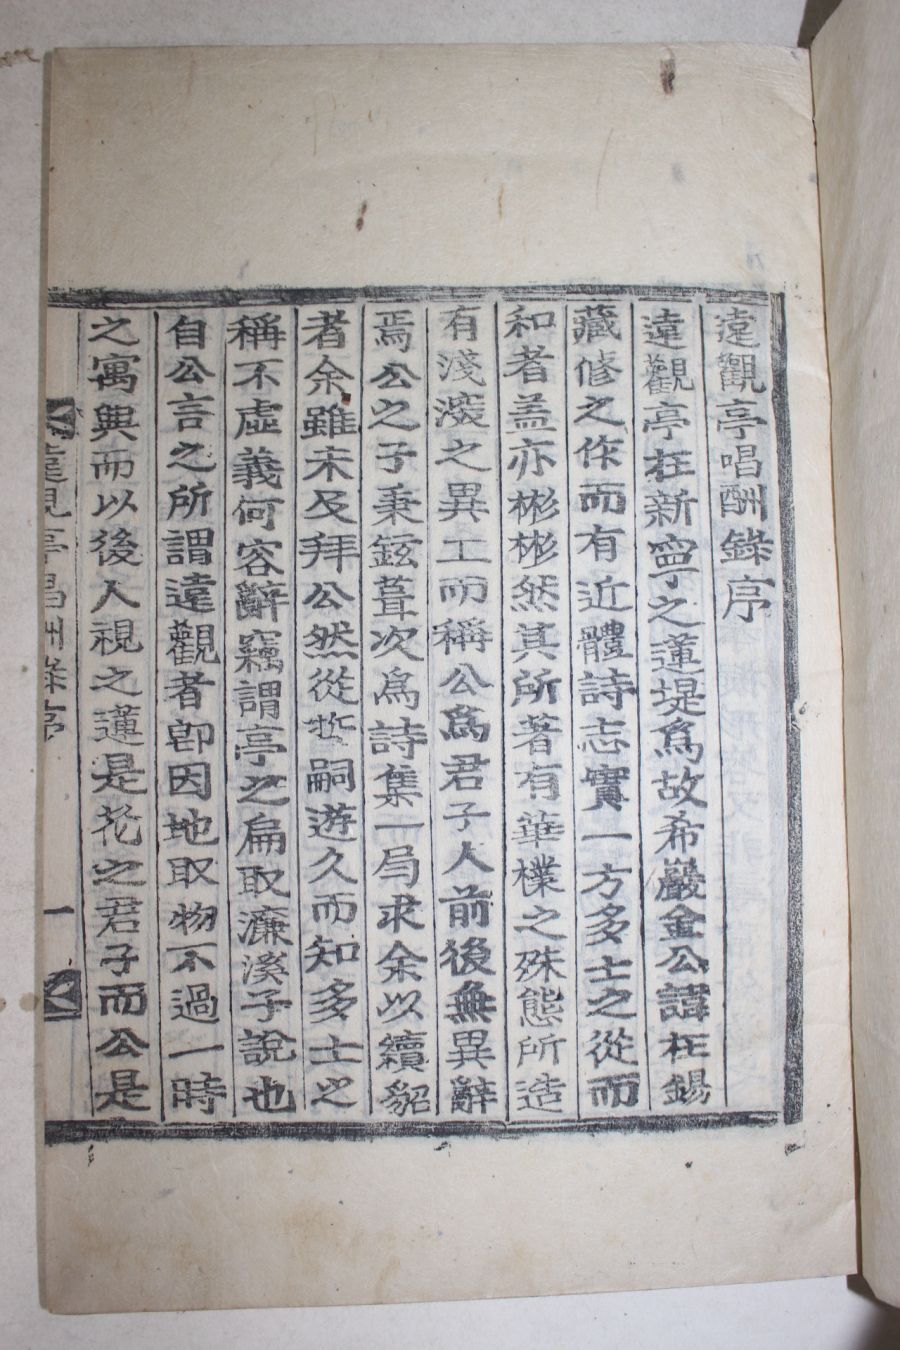 遠觀亭唱酬錄序
遠觀亭在新寧之蓮堤爲故希巖金公諱在錫
藏修之作而有近體詩志實一方多士之從而
和者盖亦彬彬然其所著有華樸之殊態所造
有淺深之異工而稱公爲君子人前後無異辭
焉公之子秉鉉葺次爲詩集一局求余以續貂
者余雖未及拜公然從哲嗣遊久而知多士之
稱不虛義何容辭竊謂亭之扁取濂溪子說也
自公言之所謂遠觀者卽因地取物不過一時
之寓興而以後人視之蓮是花之君子而公是
遠觀亭唱酬錄序
一